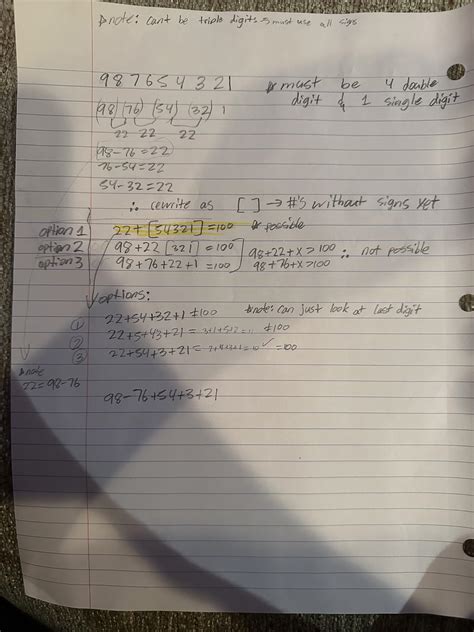 note: can't be triple digits → must use all signs
9 8 7 6 5 4 3 2 1
* must be 4 double digit & 1 single digit
(98) (76) (54) (32) 1
22 22 22
98-76=22
76-54=22
54-32=22
∴ rewrite as [ ] → #'s without signs yet
option 1 22+[54321]=100 * possible
option 2 98+22[321]=100
option 3 98+76+22+1=100
98+22+x>100
98+76+x>100 ∴ not possible
options:
① 22+54+32+1≠100
*note: can just look at last digit
② 22+5+43+21= ≠100
③ 22+54+3+21= ✓ =100
*note
22=98-76
98-76+54+3+21